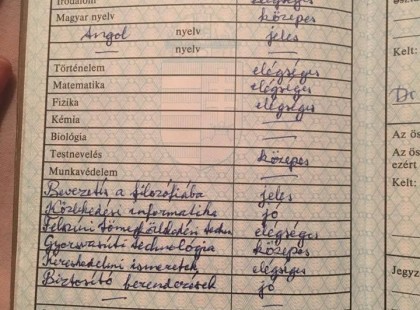 Irodalom elégséges
Magyar nyelv közepes
Angol nyelv jeles
— nyelv —
Történelem elégséges
Matematika elégséges
Fizika elégséges
Kémia —
Biológia —
Testnevelés közepes
Munkavédelem
Bevezetés a filozófiába jeles
Közlekedési informatika jó
Felszíni tömegközlekedési techn. elégséges
Gyorsvasúti technológia közepes
Kereskedelmi ismeretek elégséges
Biztosító berendezések jó
—
Kelt:
Dr
Az ös
Az ös
ezért
Kelt
Jegyz